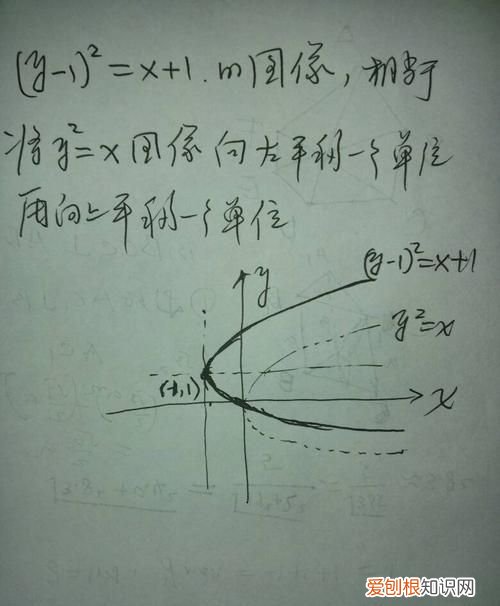 (y-1)²=x+1.的图像，相当于
将y²=x图像向左平移一个单位
再向上平移一个单位
y
(y-1)²=x+1
y²=x
(-1,1)
x
爱刨根知识网